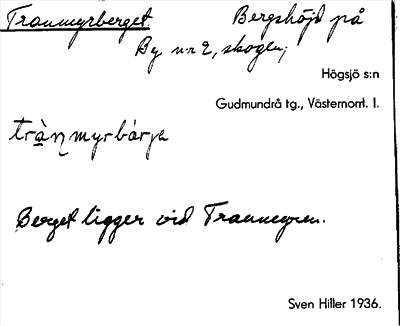 Tranmyrberget Bergshöjd på
By nr 2, skogen;
Högsjö s:n
Gudmundrå tg., Västernorrl. l.
tràn̥myrbárjə
Berget ligger vid Tranmyren.
Sven Hiller 1936.